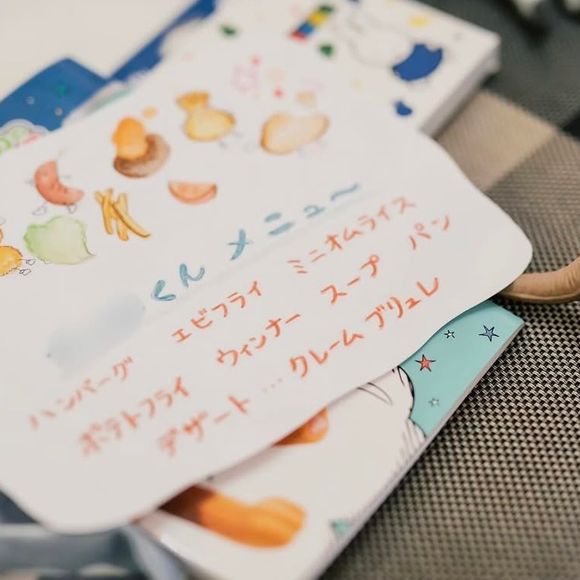 くん メニュ〜
ハンバーグ エビフライ ミニオムライス
ポテトフライ ウィンナー スープ パン
デザート … クレームブリュレ